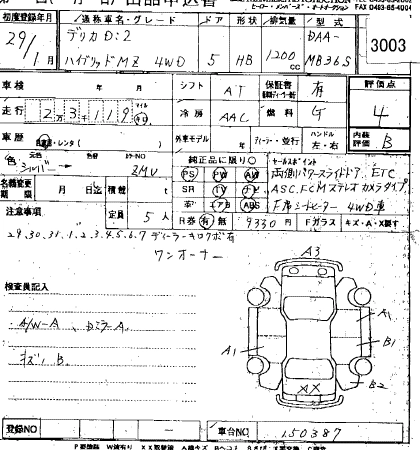 出品申込書
ヒーロー・メンバーズ・オートオークション FAX 0493-65-400
初度登録年月 通称車名・グレード ドア 形状 排気量 型式
29年 1月 デリカD:2 ハイブリッドMZ 4WD 5 HB 1200cc DAA-MB36S 3003
車検 年 月 シフト AT 保証書 有 評価点
走行 2 3 1 1 9 マイル km 冷房 AAC 燃料 G 4
車歴 自家用・レンタ 外車モデル ディーラー・並行 ハンドル 左・右 内装評価 B
色 元色 シルバー 色替 カラーNO ZMV 純正品に限り○ セールスポイント
PS PW AW 両側パワースライドドア、ETC
名義変更期限 月 日迄 積載 t SR TV ナビ ASC,FCMステレオカメラタイプ
定員 5人 革 エアB ABS F席シートヒーター 4WD車
注意事項 R券 有 無 9330円 Fガラス キズ・A・X要す
29.30.31.1.2.3.4.5.6.7 ディーラーキロク簿有
ワンオーナー
検査員記入
A3
A/W-A、
A1
A1
B1
キズ、B.
B2
XX
登録NO 車台NO 150387